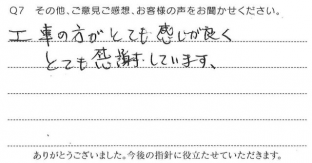 Q7 その他、ご意見ご感想、お客様の声をお聞かせください。
工事の方がとても感じが良く
とても感謝しています、
ありがとうございました。今後の指針に役立たせていただきます。